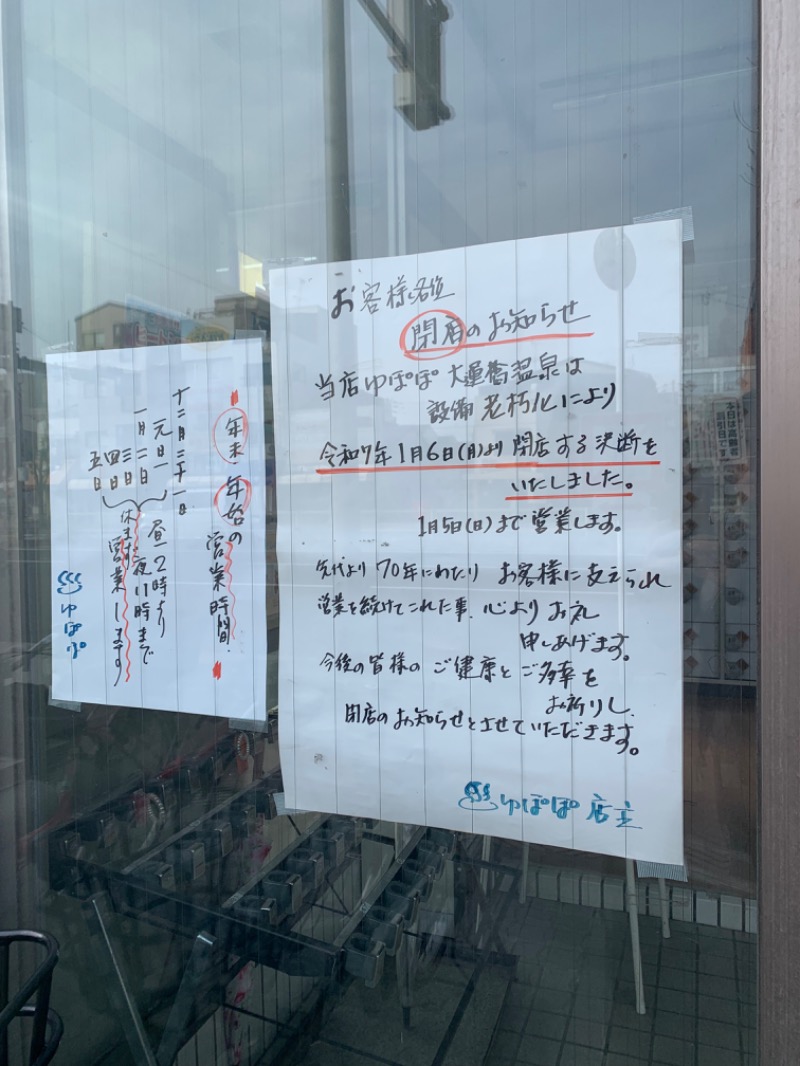 お客様各位
閉店のお知らせ
当店ゆぽぽ大運橋温泉は
設備老朽化により
令和7年1月6日(月)より閉店する決断を
いたしました。
1月5日(日)まで営業します。
先代より70年にわたり お客様に支えられ
営業を続けてこれた事、心よりお礼
申しあげます。
今後の皆様のご健康とご多幸を
お祈りし、
閉店のお知らせとさせていただきます。
ゆぽぽ店主
年末・年始の営業時間.
十二月三十一日
元日
一月二日
三日
四日
五日
昼2時より
夜11時まで
休まず営業します
ゆぽぽ
本日は高齢者
割引日です